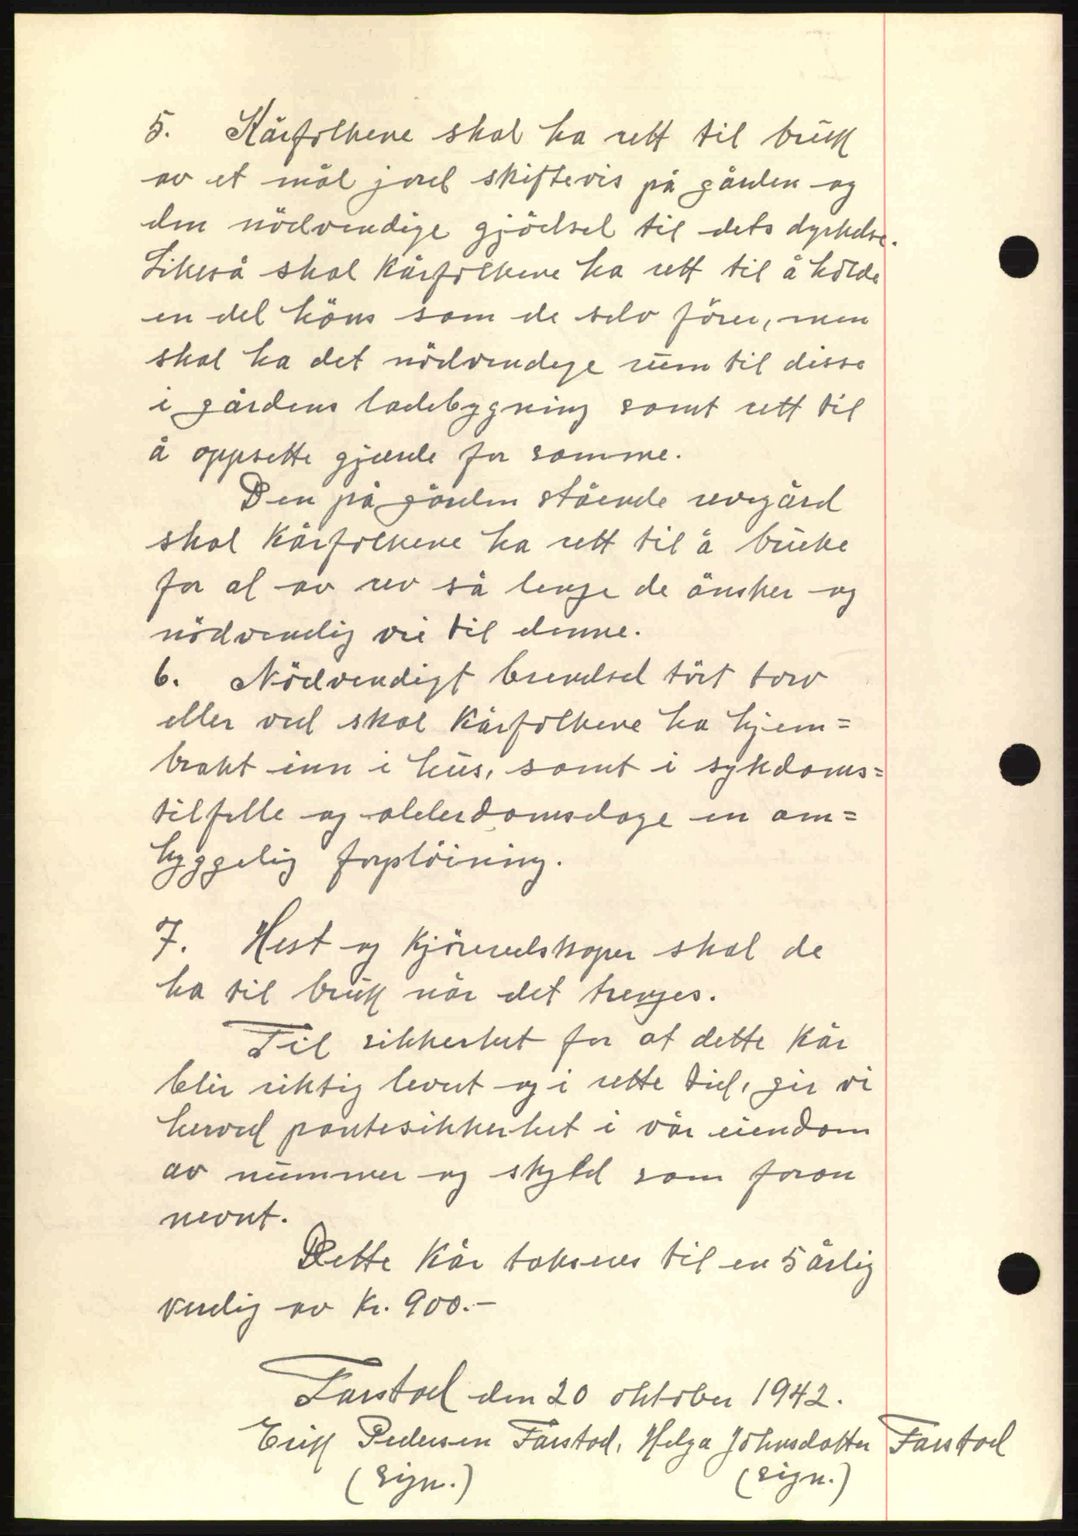 5. Kårfolkene skal ha rett til bruk
av et mål jord skiftevis på gården og
den nödvendige gjödsel til dets dyrkelse.
Likeså skal kårfolkene ha rett til å holde
en del höns som de selv förer, men
skal ha det nödvendige rum til disse
i gårdens ladebygning samt rett til
å oppsette gjerde for samme.
Den på gården stående revegård
skal kårfolkene ha rett til å bruke
for al av rev så lenge de önsker og
nödvendig vei til denne.
6. Nödvendigt brendsel tört torv
eller ved skal kårfolkene ha hjem=
brakt inn i hus, samt i sykdoms=
tilfelle og alderdomsdage en om=
hyggelig forpleining.
7. Hest og kjöreredskaper skal de
ha til bruk når det trenges.
Til sikkerhet for at dette kår
blir riktig levert og i rette tid, gir vi
herved pantesikkerhet i vår eiendom
av nummer og skyld som foran
nevnt.
Dette kår takseres til en 5 årlig
verdig av kr. 900.-
Farstad den 20 oktober 1942.
Erik Pedersen Farstad, Helga Johnsdatter Farstad
(sign.) (sign.)